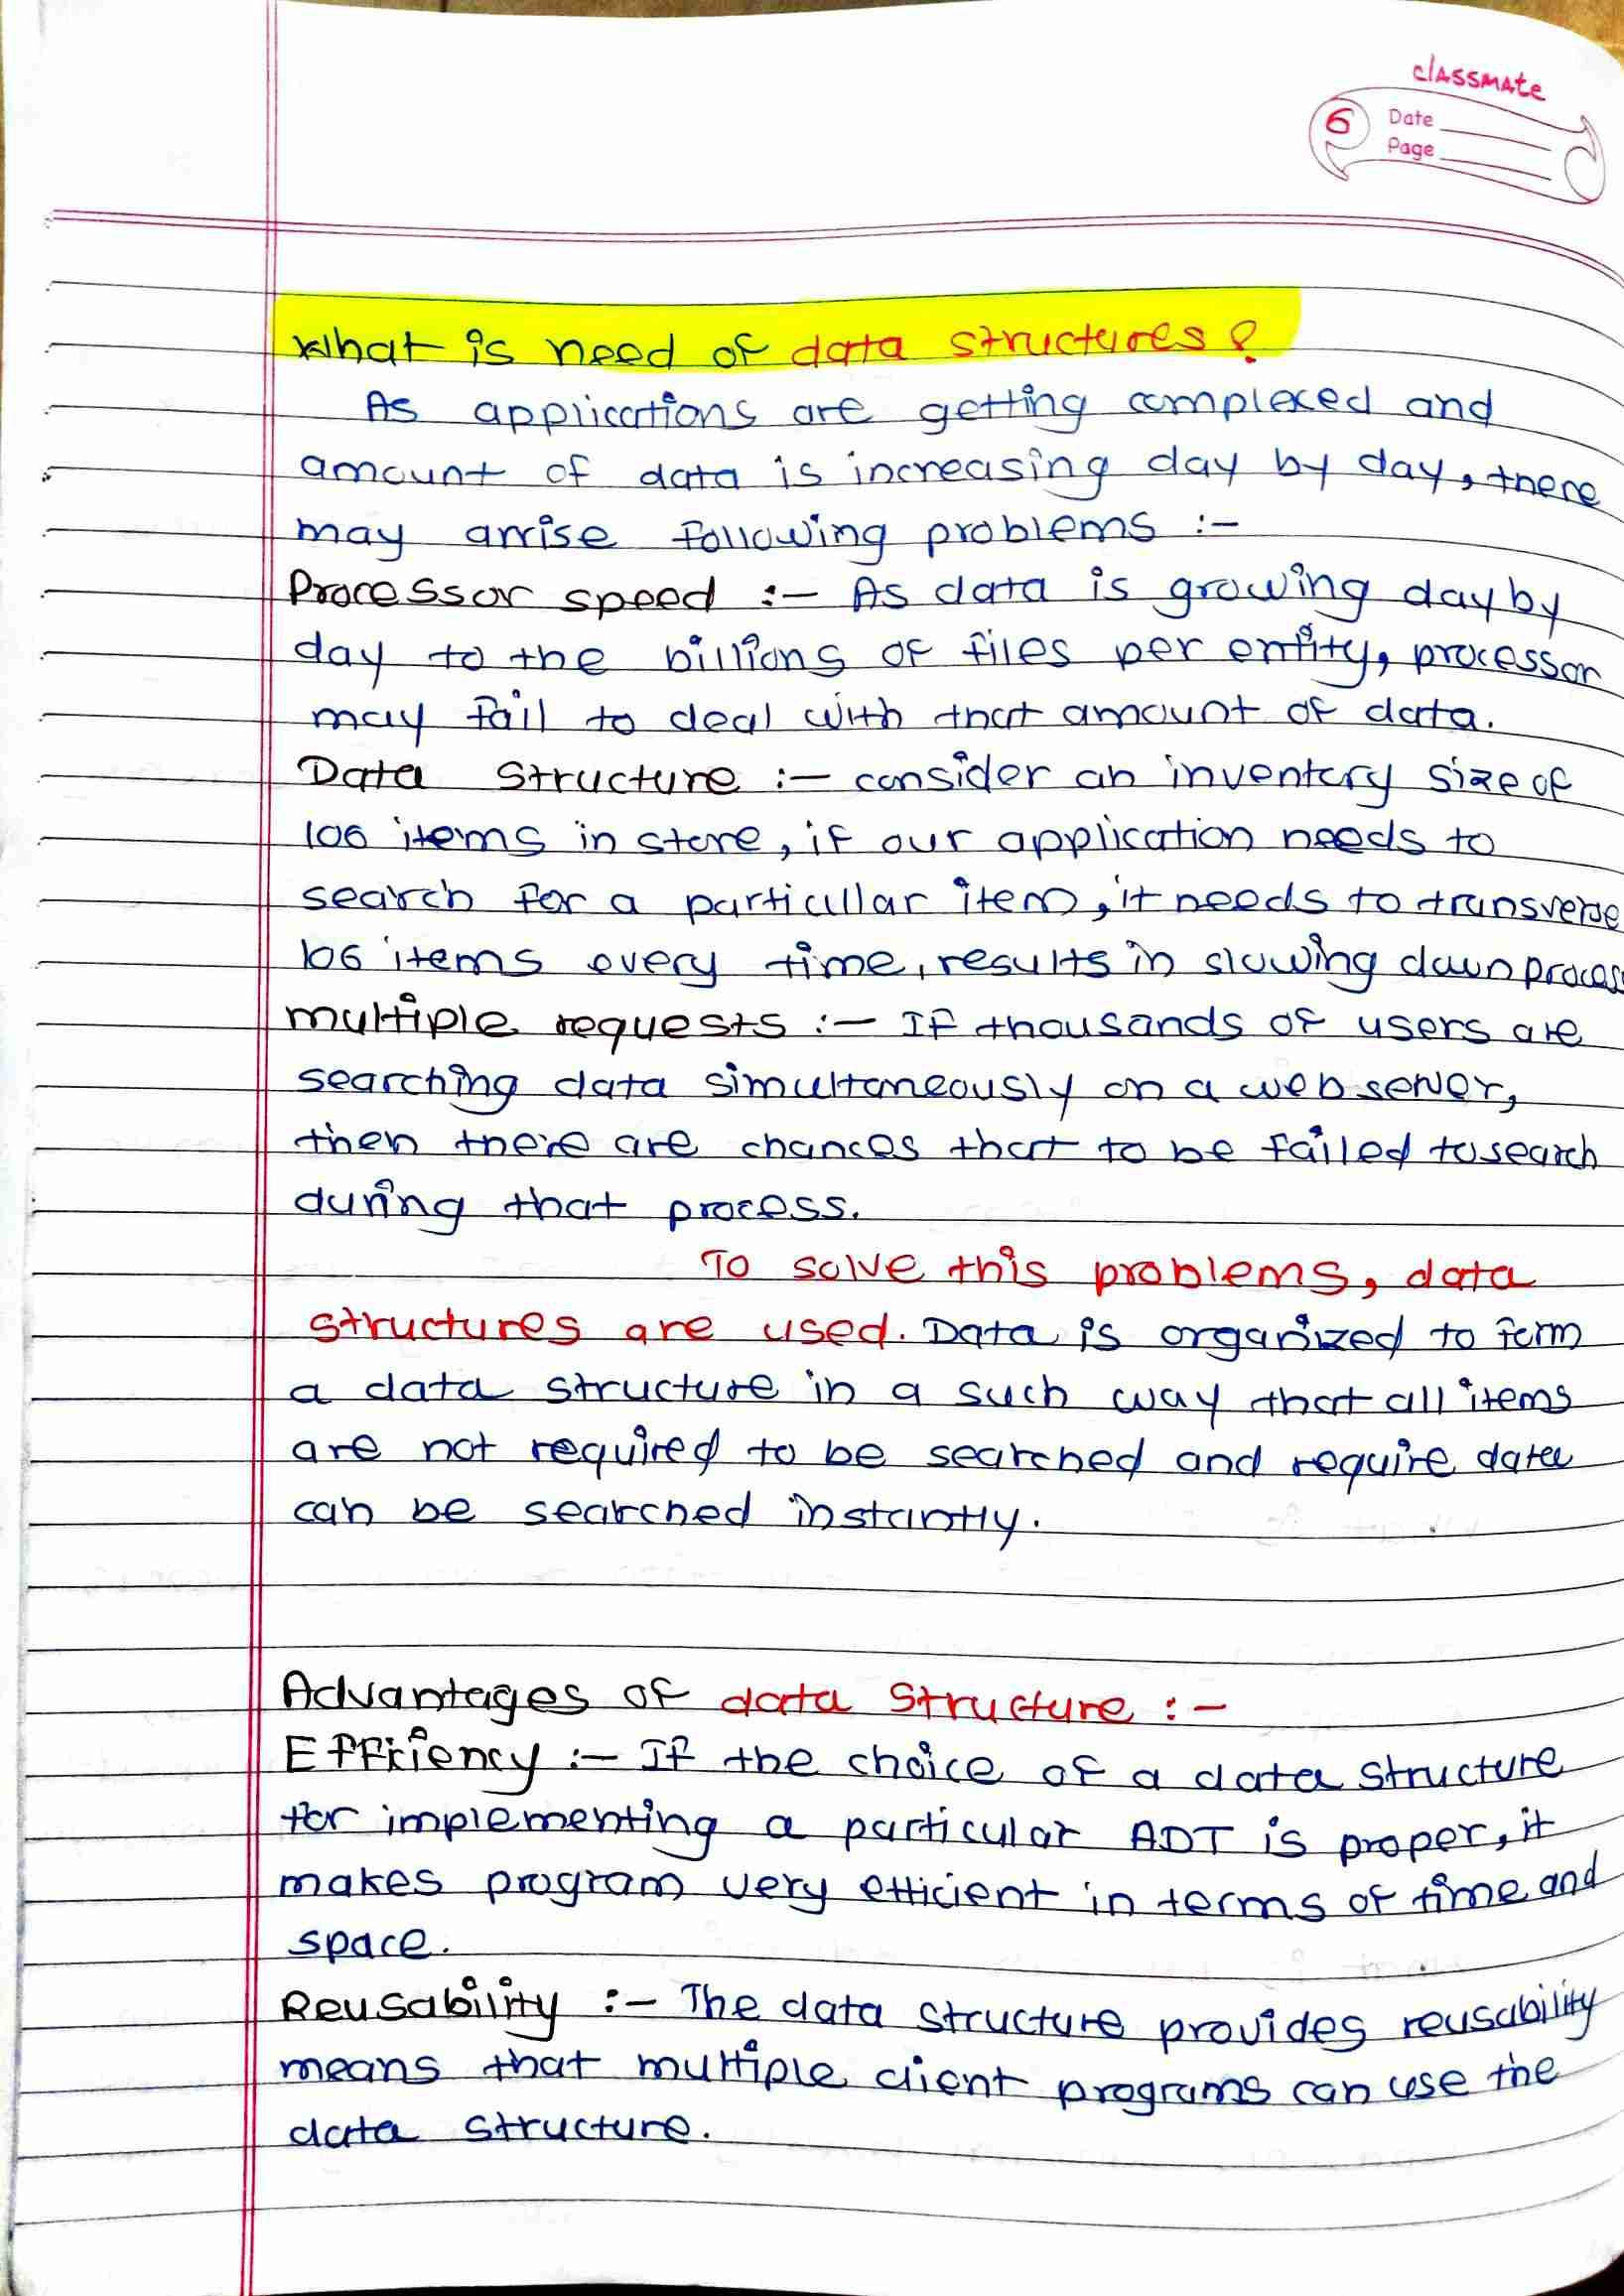 classmate
6 Date
Page
What is need of data structures?
As applications are getting complexed and
amount of data is increasing day by day, there
may arrise following problems :-
Processor speed :- As data is growing day by
day to the billions of files per entity, processor
may fail to deal with that amount of data.
Data Structure :- consider an inventory size of
106 items in store, if our application needs to
search for a particular item, it needs to transverse
106 items every time, results in slowing down proces
multiple requests :- If thousands of users are
searching data simultaneously on a web server,
then there are chances that to be failed to search
during that process.
To solve this problems, data
structures are used. Data is organized to form
a data structure in a such way that all items
are not required to be searched and require data
can be searched instantly.
Advantages of data structure :-
Efficiency :- If the choice of a data structure
for implementing a particular ADT is proper, it
makes program very efficient in terms of time and
space.
Reusability :- The data structure provides reusability
means that multiple client programs can use the
data structure.